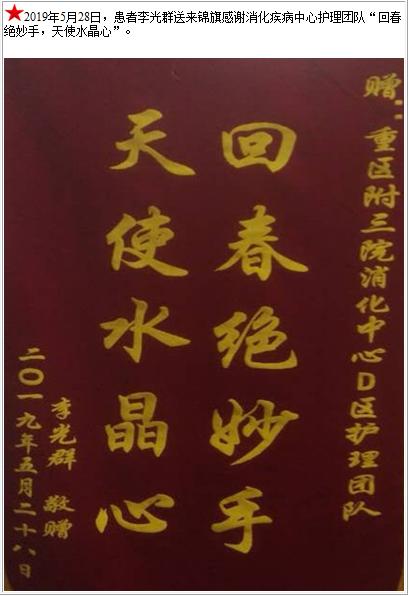 ★2019年5月28日，患者李光群送来锦旗感谢消化疾病中心护理团队“回春
绝妙手，天使水晶心”。
赠：重区附三院消化中心D区护理团队
回春绝妙手
天使水晶心
李光群 敬赠
二〇一九年五月二十八日